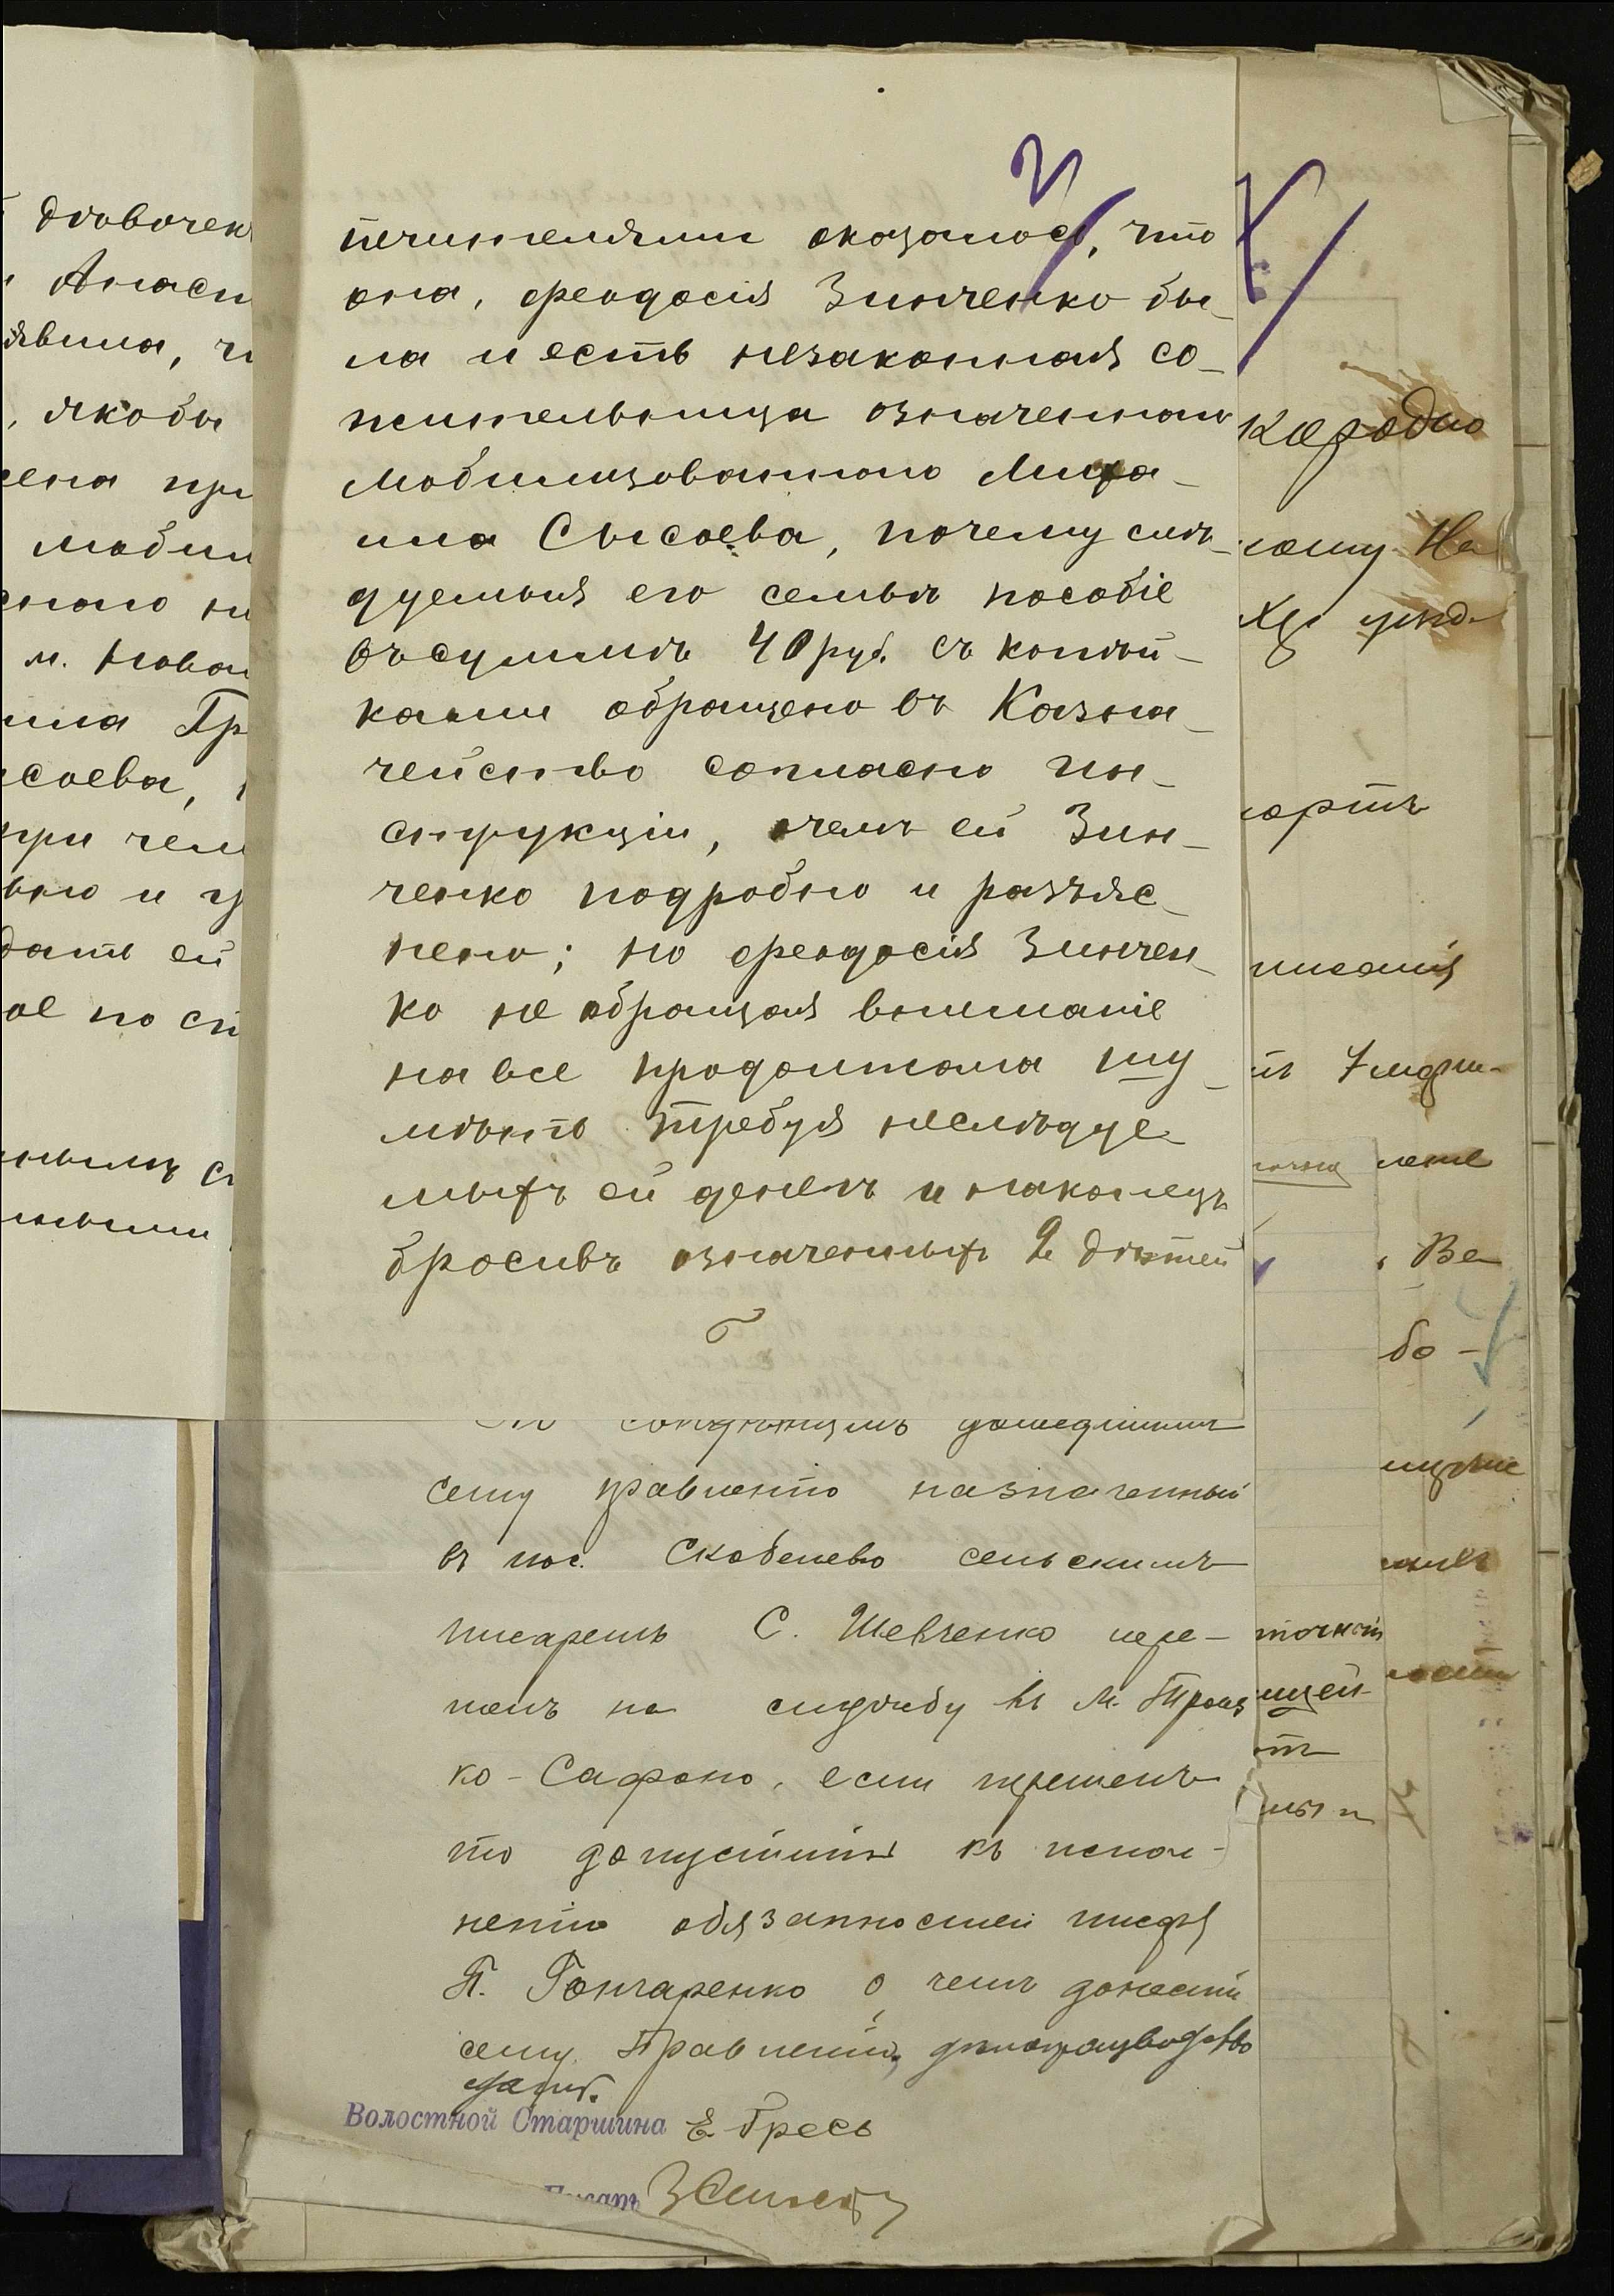 дѣвочек
Анаси
явила, ч
, якобы
сена при
мобил
м. Ново
Гр
соева,
при чем
дать ей
ое по сп
печителями оказалось, что
она, Феодосія Зинченко бы-
ла и есть незаконная со-
жительница означеннаго
мобилизованного Миха-
ила Сысоева, почему слѣ-
дуемыя его семьѣ пособіе
въ суммѣ 40 руб. съ копѣй-
ками обращено въ Казна-
чейство согласно ин-
струкціи, о чемъ ей Зин-
ченко подробно и разъяс-
нено; но Феодосія Зинчен-
ко не обращая вниманіе
на все продолжала шу-
мѣть требуя неслѣдуе-
мыхъ ей денегъ и наконецъ
бросивъ означенныхъ 2 дѣтей
По дошедшимъ
сему правленію назначенный
въ пос. Скобелево сельскимъ
писаремъ С. Шевченко пере-
шелъ на службу въ М. Троиц
ко-Сафоно, если перешелъ
то допустить къ испол-
ненію обязанностей писаря
П. Гончаренко о чемъ донести
сему Правленію, дѣлопроизводство
Волостной Старшина Е. Гресь
Писарь
писанія
Ве
бо-